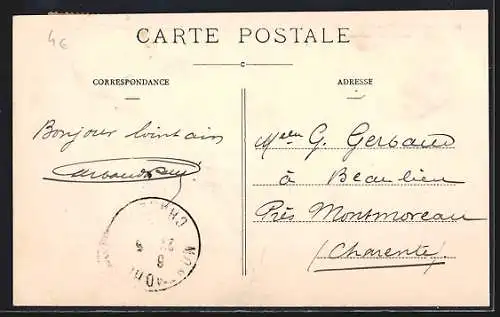 4€
CARTE POSTALE
CORRESPONDANCE
ADRESSE
Bonjour lointain
Melle G. Gerbaud
à Beaulieu
Près Montmoreau
(Charente)